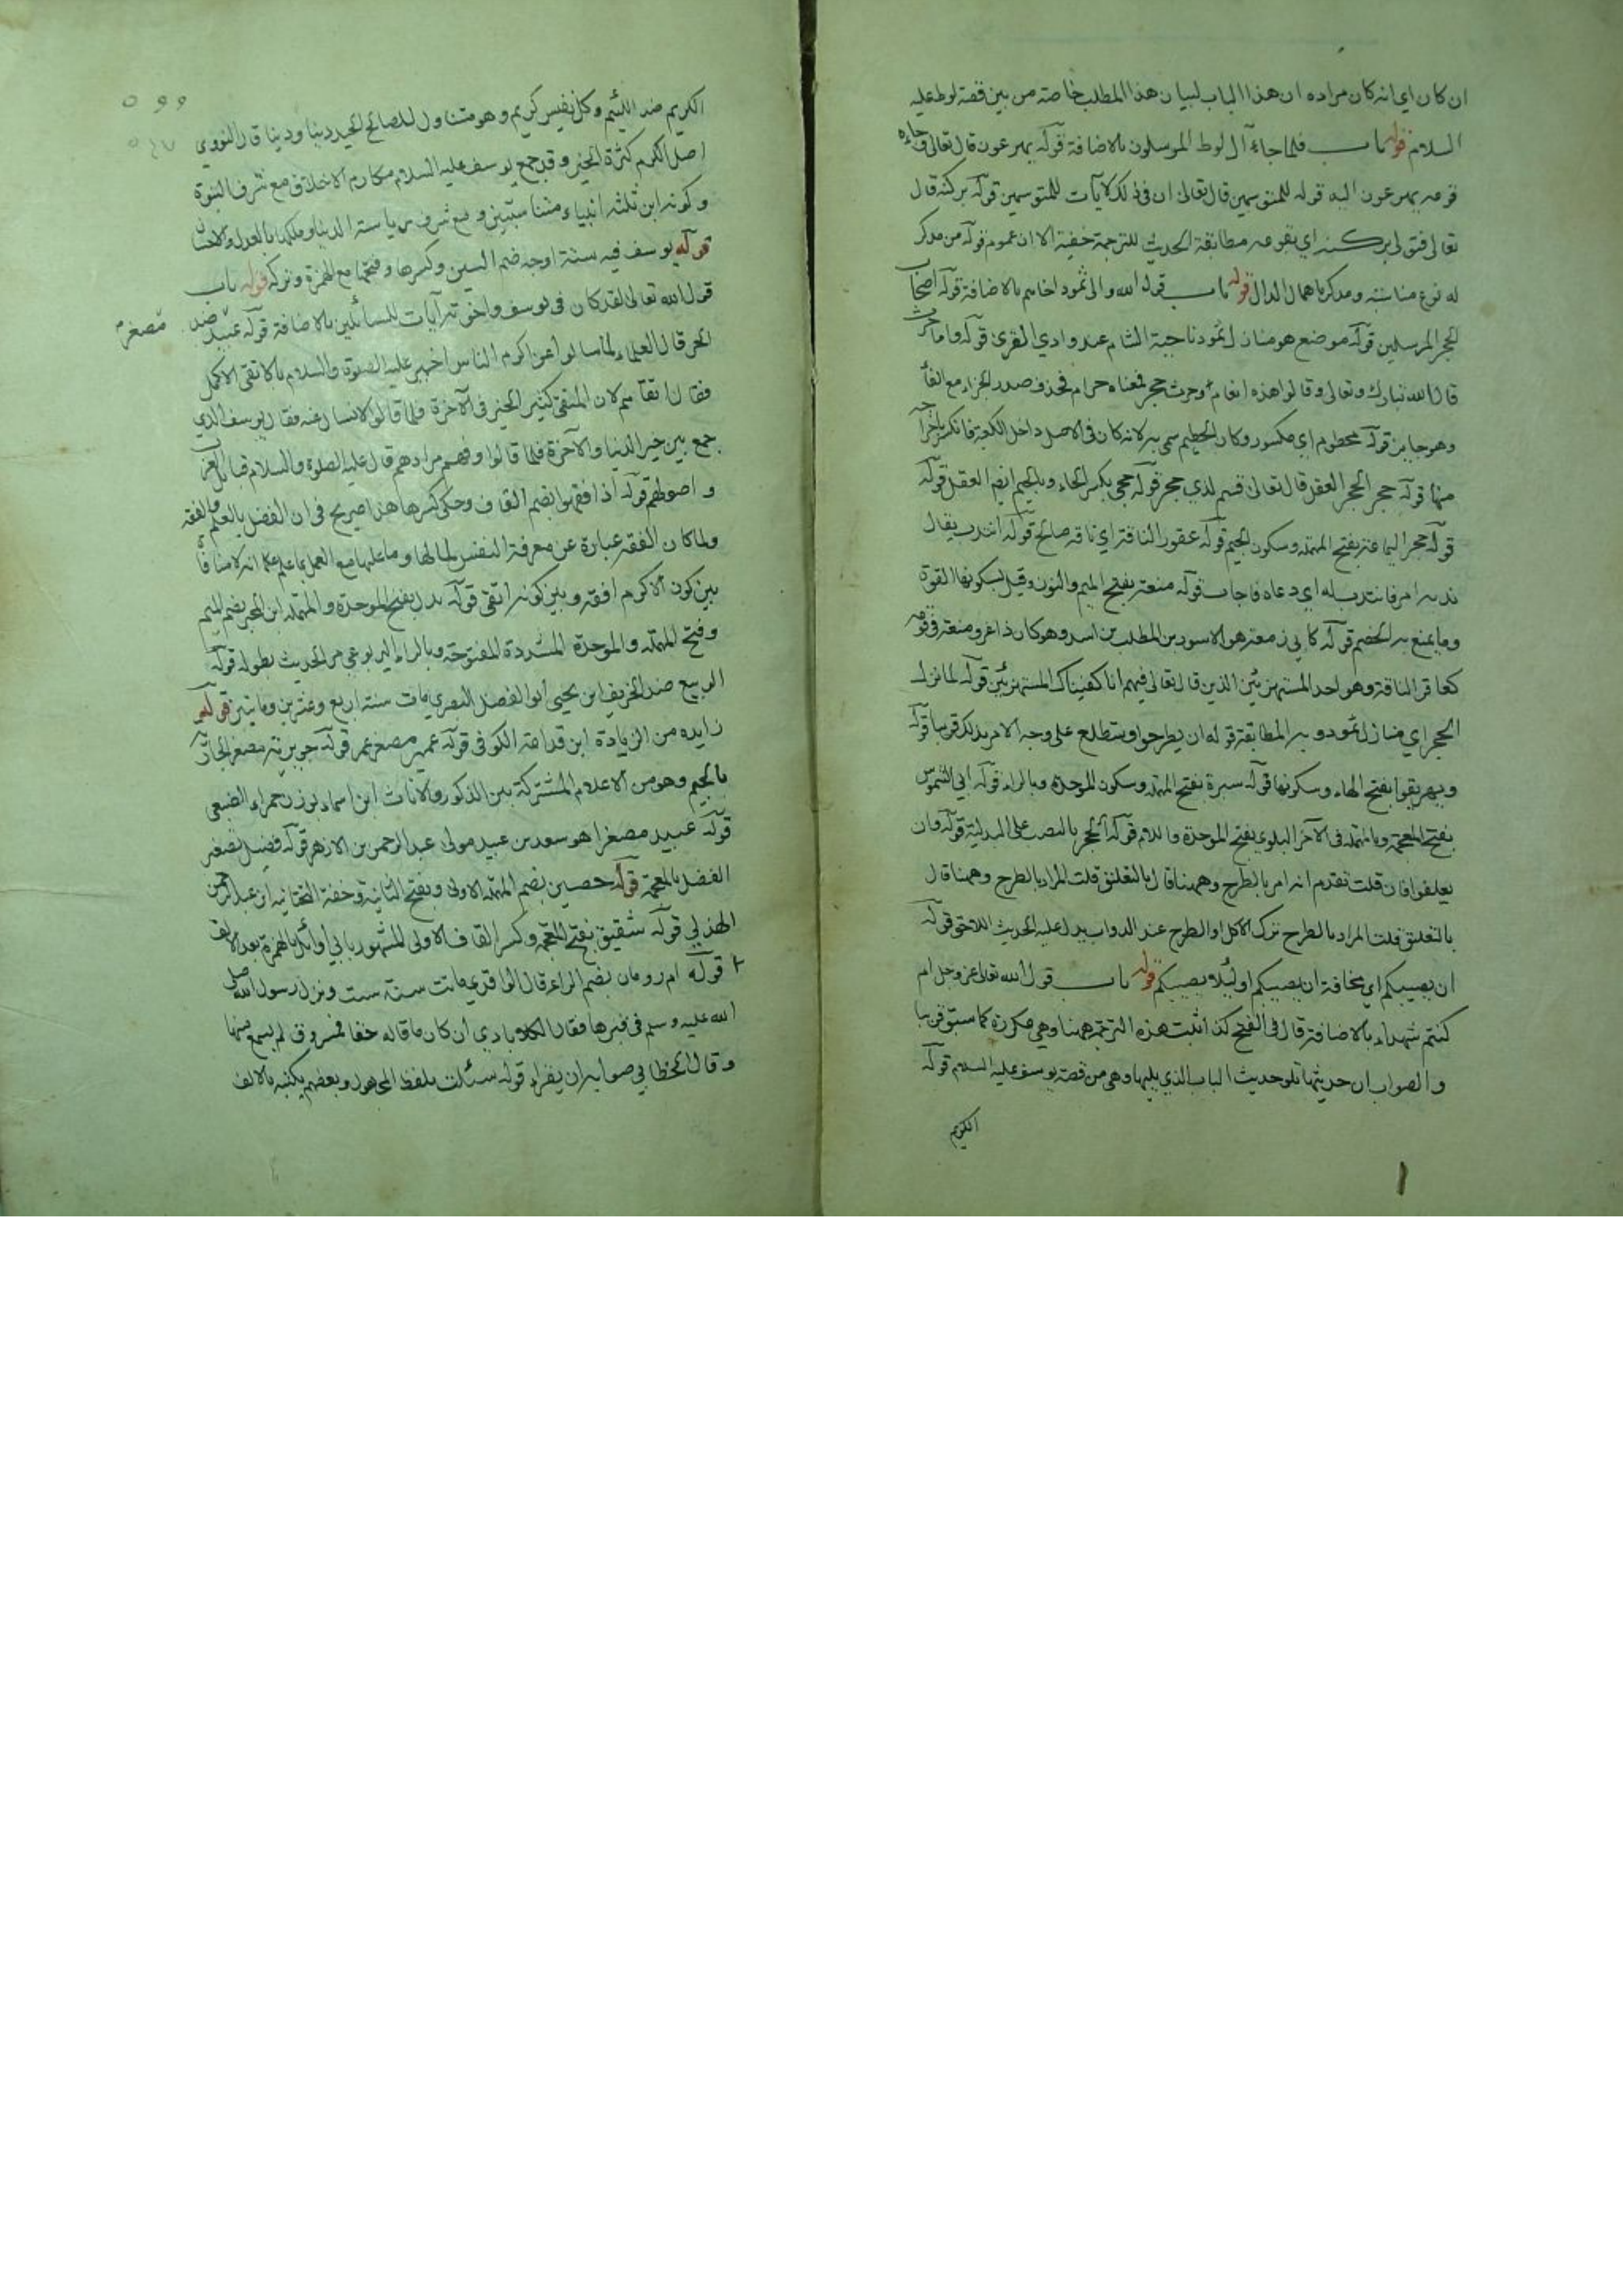 ان كان اي انه كان مراده ان هذا الباب لبيان هذا المطلب خاصة من بين قصة لوط عليه
السلام قوله باب فلما جاء آل لوط المرسلون بالاضافة قوله يهرعون قال تعالى وجاءه
قومه يهرعون اليه قوله للمتوسمين قال تعالى ان في ذلك لآيات للمتوسمين قوله بركنه قال
تعالى فتولى بركنه اي بقومه مطابقة الحديث للترجمة خفية الا ان عموم قوله من مدكر
له نوع مناسبة ومدكر باهمال الدال قوله باب قول الله والى ثمود اخاهم بالاضافة قوله اصحاب
الحجر المرسلين قوله موضع هو منازل ثمود ناحية الشام عند وادي القرى قوله واما حرث
قال الله تبارك وتعالى وقالوا هذه انعام وحرث حجر فمعناه حرام فحذف صدر الجزاء مع الفاء
وهو جايز قوله محطوم اي مكسور وكان الحطيم سمي به لانه كان في الاصل داخل الكعبة فانكسر باخراجه
منها قوله حجر الحجر العقل قال تعالى قسم لذي حجر قوله حجى بكسر الحاء وبالجيم ايضا العقل قوله
قوله حجر اليمامة بفتح المهملة وسكون الجيم قوله عقور الناقة اي ناقة صالح قوله انتدب يقال
ندبه امر فانتدب له اي دعاه فاجاب قوله منعة بفتح الميم والنون وقيل بسكونها القوة
وما يمنع به الخصم قوله كابي زمعة هو الاسود بن المطلب بن اسد وهو كان ذا عز ومنعة في قومه
كعاقر الناقة وهو احد المستهزئين الذين قال تعالى فيهم انا كفيناك المستهزئين قوله لما نزل
الحجر اي منازل ثمود وبه المطابقة قوله ان يطرحوا وستطلع على وجه الامر بذلك قريبا قوله
ويهريقوا بفتح الهاء وسكونها قوله سبرة بفتح المهملة وسكون الموحدة وبالراء قوله ابي الشموس
بفتح المعجمة وبالمهملة في الآخر البلوي بفتح الموحدة واللام قوله الحجر بالنصب على البدلية قوله وان
يعلفوا فان قلت تقدم انه امر بالطرح وههنا قال بالتعليق قلت المراد بالطرح وههنا قال
بالتعليق قلت المراد بالطرح ترك الاكل او الطرح عند الدواب يدل عليه الحديث اللاحق قوله
ان يصيبكم اي مخافة ان يصيبكم او لئلا يصيبكم قوله باب قول الله تعالى عز وجل ام
كنتم شهداء بالاضافة قال في الفتح كذا ثبتت هذه الترجمة ههنا وهي مكررة كما سبق قريبا
والصواب ان حديثها تلو حديث الباب الذي يليها وهي من قصة يوسف عليه السلام قوله
الكريم
الكريم ضد اللئيم وكل نفيس كريم وهو متناول للصالح الخير دينا ودنيا قال النووي
اصل الكرم كثرة الخير وقد جمع يوسف عليه السلام مكارم الاخلاق مع شرف النبوة
وكونه ابن ثلثة انبياء متناسبين ومع شرف رياسة الدنيا وملكها بالعدل والاحسان
قوله يوسف فيه ستة اوجه ضم السين وكسرها وفتحها مع الهمزة وتركه قوله باب
قول الله تعالى لقد كان في يوسف واخوته آيات للسائلين بالاضافة قوله عبيد ضد
مصغر
الحر قال العلماء لما سالوا عن اكرم الناس اخبر عليه الصلوة والسلام بالاتقى الاكمل
فقال اتقاهم لان المتقي كثير الخير في الآخرة فلما قالوا لا نسال عنه فقال يوسف الذي
جمع بين خير الدنيا والآخرة فلما قالوا وفهم مرادهم قال عليه الصلوة والسلام قبائل العرب
واصولهم قوله اذا فقهوا بضم القاف وحكي كسرها هذا صريح في ان الفضل بالعلم والفقه
ولما كان الفقه عبارة عن معرفة النفس ما لها وما عليها مع العمل بما علم علم انه لا منافاة
بين كون الاكرم افقه وبين كونه اتقى قوله بدل بفتح الموحدة والمهملة ابن المحبر بضم الميم
وفتح المهملة والموحدة المشددة المفتوحة وبالراء اليربوعي مر الحديث بطوله قوله
الربيع ضد الخريف ابن يحيى ابو الفضل البصري مات سنة اربع وعشرين ومايتين قوله
زايده من الزيادة ابن قدامة الكوفي قوله عمير مصغر عمر قوله جويرية مصغر الجارية
بالجيم وهو من الاعلام المشتركة بين الذكور والاناث ابن اسماء بوزن حمراء الضبعي
قوله عبيد مصغرا هو سعد بن عبيد مولى عبد الرحمن بن الازهر قوله فضيل مصغر
الفضل بالمعجمة قوله حصين بضم المهملة الاولى وبفتح الثانية وخفة التحتانية ابن عبد الرحمن
الهذلي قوله شقيق بفتح المعجمة وكسر القاف الاولى المشهور بابي وائل بالهمزة بعد الالف
قوله ام رومان بضم الراء قال الواقدي ماتت سنة ست ونزل رسول الله صلى
الله عليه وسلم في قبرها فقال الكلاباذي ان كان ما قاله حقا فمسروق لم يسمع منها
وقال الخطابي صوابه ان يقراء قوله سئلت بلفظ المجهول وبعضهم يكتبه بالالف